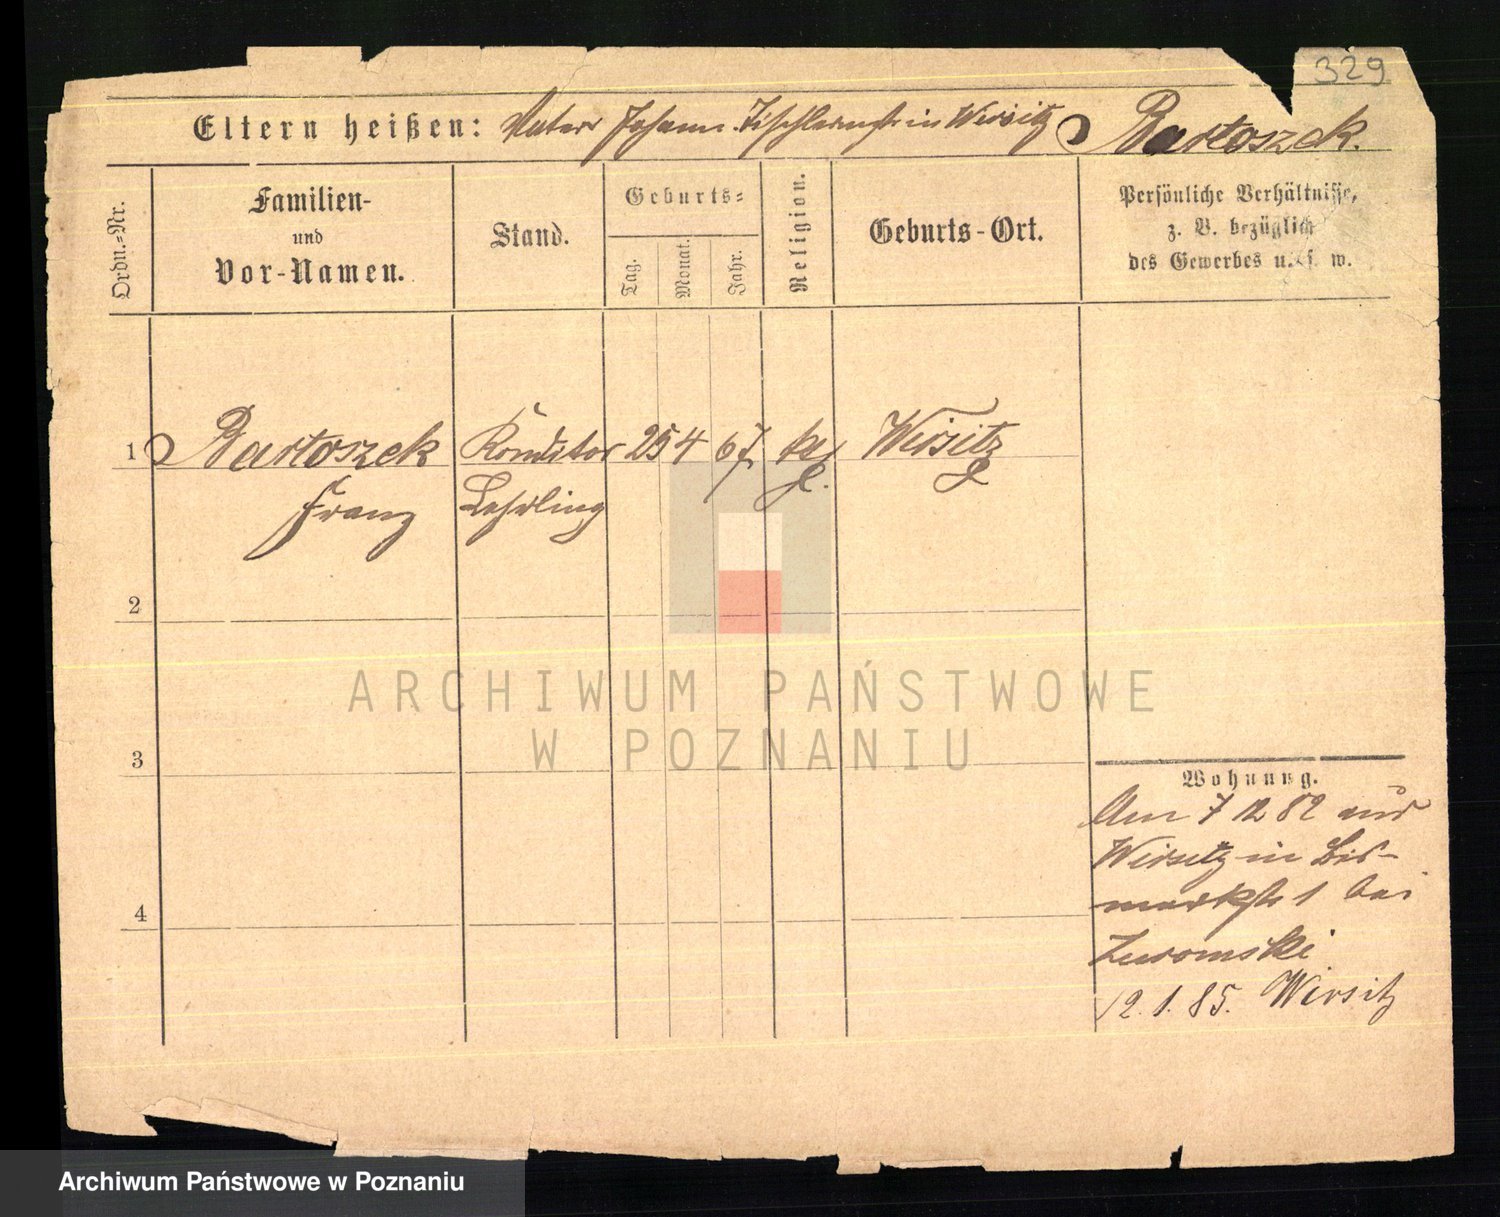 329
Eltern heißen: Vater Johann Tischlermstr in Wirsitz Bartoszek.
Ordn.-Nr.
Familien-
und
Vor-Namen.
Stand.
Geburts-
Tag.
Monat.
Jahr.
Religion.
Geburts-Ort.
Persönliche Verhältnisse,
z. B. bezüglich
des Gewerbes u. s. w.
1 Bartoszek Konditor 25 4 67 Wirsitz
Franz Lehrling
2
3
4
Wohnung.
Am 7 12 82 aus
Wirsitz in Bis-
markstr 1 bei
Zuromski
12.1.85. Wirsitz
ARCHIWUM PAŃSTWOWE
W POZNANIU
Archiwum Państwowe w Poznaniu